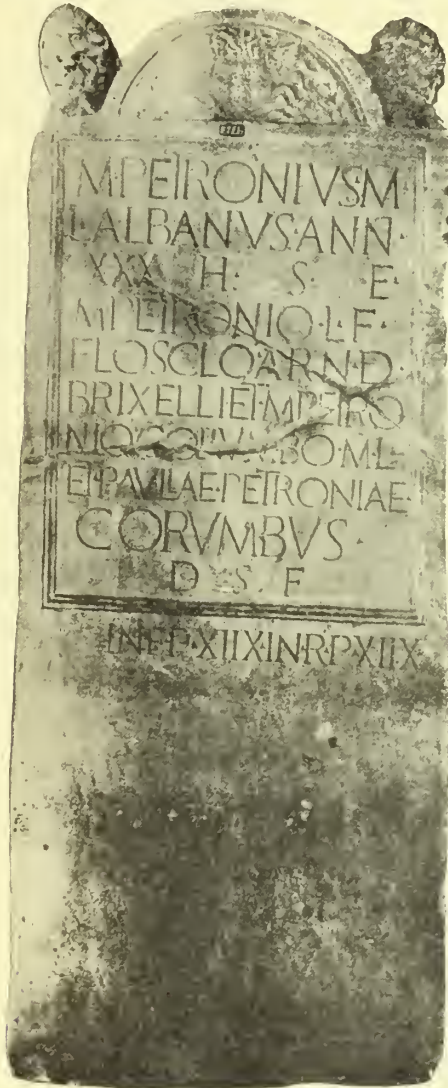 M·PETRONIVS·M
L·ALBANVS·ANN·
XXX H· S· E·
M·PETRONIO·L·F·
FLOSCLO·ARN·D·
BRIXELLI·ET·M·PETRO
NIO·CORVMBO·M·L·
ET·PAVLLAE·PETRONIAE·
CORVMBVS·
D S F
IN·F·P·XIIX·IN·R·P·XIIX